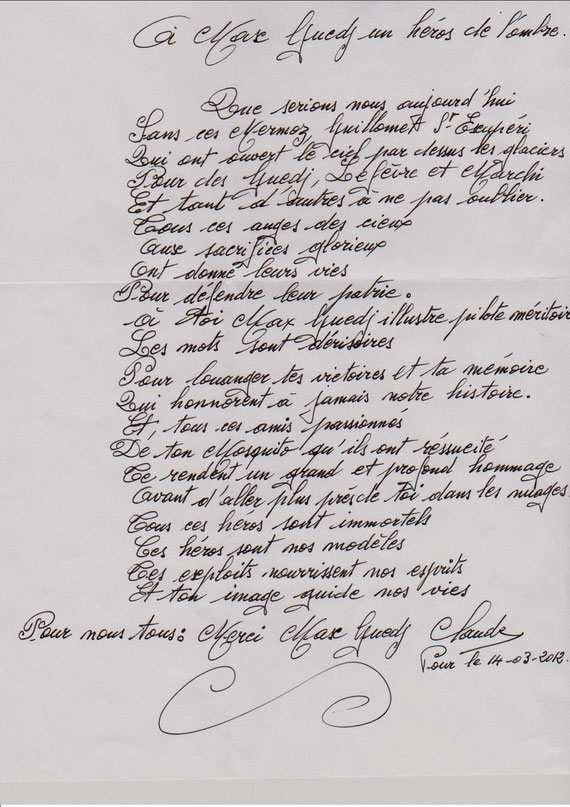 à Max Guedj un héros de l'ombre.
Que serions nous aujourd'hui
Sans ces Mermoz, Guillomet, St Exupéri
Qui ont ouvert le ciel par dessus les glaciers
Pour des Guedj, Lefèvre et Marchi
Et tant d'autres à ne pas oublier.
Tous ces anges des cieux
Aux sacrifices glorieux
Ont donné leurs vies
Pour défendre leur patrie.
à toi Max Guedj illustre pilote méritoir
Les mots sont dérisoires
Pour louanger tes victoires et ta mémoire
Qui honnorent à jamais notre histoire.
Et, tous ces amis passionnos
De ton Mosquito qu'ils ont réssucité
Te rendent un grand et profond hommage
avant d'aller plus près de toi dans les nuages
Tous ces héros sont immortels
Ces héros sont nos modèles
Tes exploits nourrissent nos esprits
Et ton image guide nos vies
Pour nous tous: Merci Max Guedj Claude
Pour le 14-03-2012.